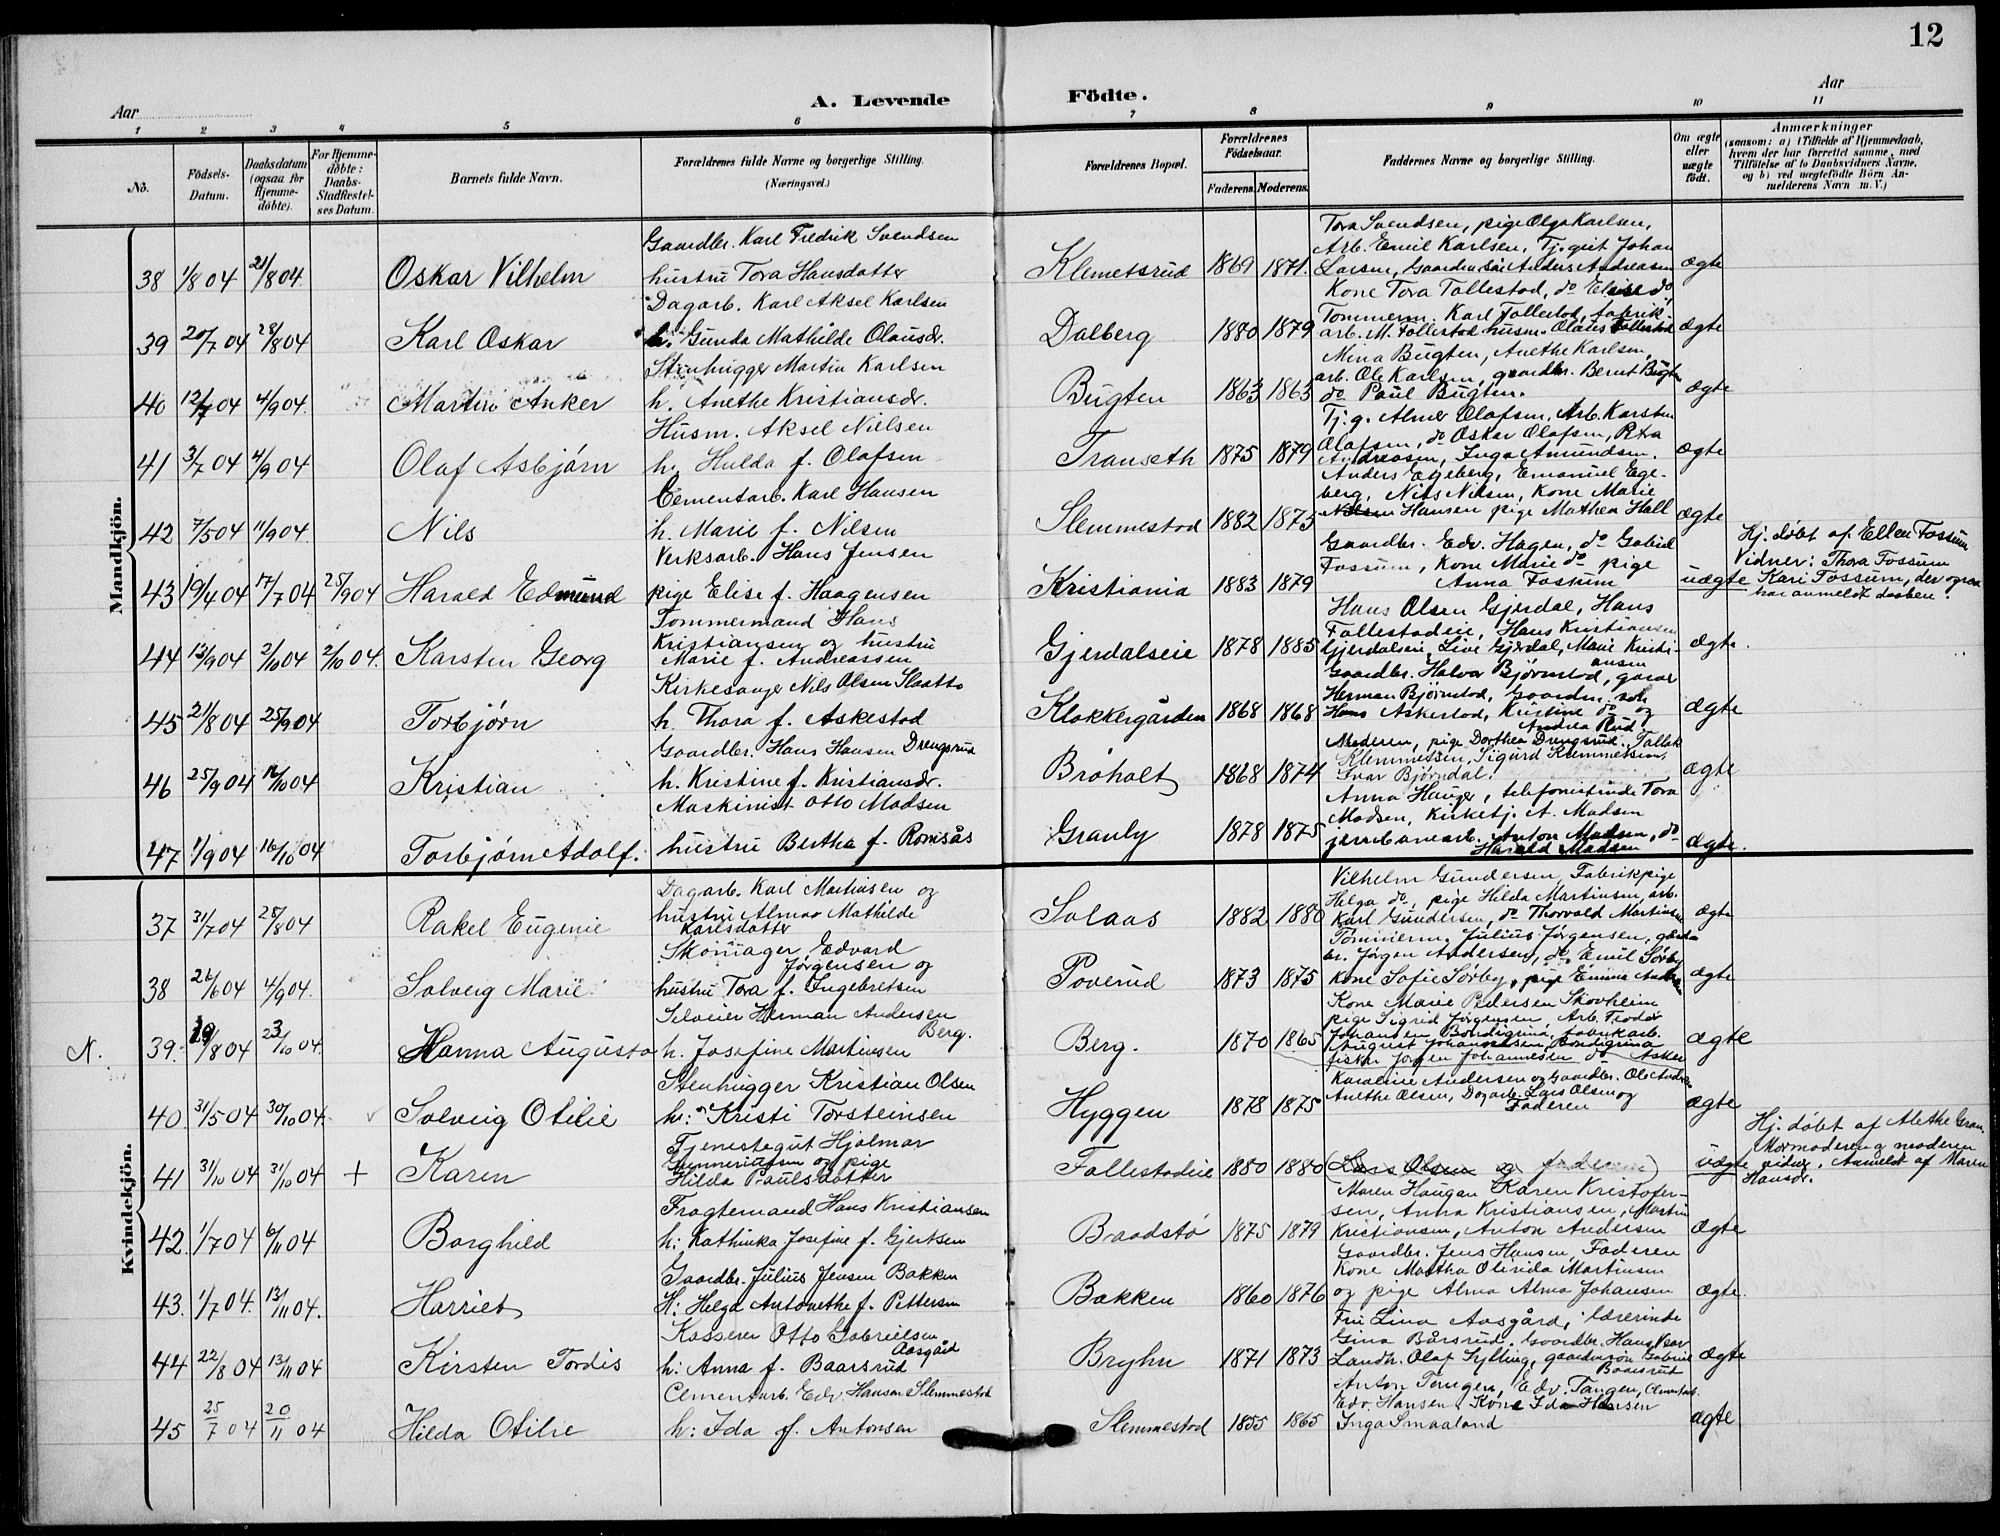 12
Aar
A. Levende
Födte.
Aar
1 2 3 4 5 6 7 8 9 10 11
No.
Födsels-Datum.
Daabsdatum (ogsaa for Hjemme-döbte).
For Hjemme-döbte: Daabs-Stadfæstel-ses Datum.
Barnets fulde Navn.
Forældrenes fulde Navne og borgerlige Stilling. (Næringsvei.)
Forældrenes Bopæl.
Forældrenes Födselsaar.
Faderens. Moderens.
Faddernes Navne og borgerlige Stilling.
Om ægte eller uægte födt.
Anmærkninger
(saasom: a) i Tilfælde af Hjemmedaab, hvem der har forrettet samme, med Tilföielse af to Daabsvidners Navne, og b) ved uægtefödte Börn An-melderens Navn m. V.)
Mandkjön.
Gaardbr. Karl Fredrik Svendsen
Tora Svendsen, pige Olga Karlsen,
Arb. Emil Karlsen, Tj.gut Johan
38 1/8 04 21/8 04 Oskar Vilhelm hustru Tora Hansdatter Klemetsrud 1869 1871. Larsen, Gaardm. søn Anders Andreasen ægte
Dagarb. Karl Aksel Karlsen
Kone Tora Follestad, do Elise do
Tømmerm. Karl Follestad, fabrik-
39 20/7 04 28/8 04 Karl Oskar h. Gunda Mathilde Olausdr. Dalberg 1880 1879 arb. M. Follestad husm. Olaus Follestad ægte
Stenhugger Martin Karlsen
Mina Bugten, Anethe Karlsen,
arb. Ole Karlsen, gaardbr. Bernt Bugten
40 12/7 04 4/9 04 Martin Anker h. Anethe Kristiansdr. Bugten 1863 1863 do Paul Bugten. ægte
Husm. Aksel Nielsen
Tj. g. Almer Olafsen, Arb. Karsten
Olafsen, do Oskar Olafsen, Petra
41 3/7 04 4/9 04 Olaf Asbjørn h. Hulda f. Olafsen Transeth 1875 1879 Andreasen, Inga Amundsen. ægte
Cementarb. Karl Hansen
Anders Egeberg, Emanuel Ege-
berg, Nils Nilsen, Kone Marie
42 7/5 04 11/9 04 Nils h. Marie f. Nilsen Slemmestad 1882 1875 Hansen pige Mathea Hall ægte
Verksarb. Hans Jensen
Gaardbr. Edv. Hagen, do Gabriel
Fossum, Kone Marie do pige
Hj. døbt af Ellen Fossum
Vidner: Thora Fossum
43 19/4 04 17/7 04 25/9 04 Harald Edmund pige Elise f. Haagensen Kristiania 1883 1879 Anna Fossum uægte Kari Fossum, der ogsaa
har anmeldt daaben.
Tømmermand Hans
Kristiansen og hustru
Hans Olsen Gjerdal, Hans
Follestadeie, Hans Kristiansen
44 13/9 04 2/10 04 2/10 04. Karsten Georg Marie f. Andreassen Gjerdalseie 1878 1885 Gjerdalseie, Live Gjerdal, Marie Kristi-
ansen
ægte.
Kirkesanger Nils Olsen Slaatto
Gaardbr. Halvor Bjørnstad, gaar
Herman Bjørnstad, Gaardm. søn
45 21/8 04 25/9 04 Torbjørn h. Thora f. Askestad Klokkergården 1868 1868 Hans Askestad, Kristine do og
Andrea Rud
ægte
Gaardbr. Hans Hansen Drengsrud
Moderen, pige Dorthea Drengsrud. Tallak
Klemmetsen, Sigurd Klemmetsen,
46 25/9 04 16/10 04 Kristian h. Kristine f. Kristiansdr. Brøholt 1868 1874 Ivar Bjørndal. ægte
Maskinist Otto Madsen
Anna Hauger, telefonistinde Tora
Madsen, Kirketj. A. Madsen
47 1/9 04 16/10 04 Torbjørn Adolf. hustru Bertha f. Romsås Granly 1878 1875 jernbanearb. Anton Madsen, do
Harald Madsen
ægte.
Kvindekjön.
Dagarb. Karl Martinsen og
Vilhelm Gundersen, Fabrikpige
Helga do, pige Hilda Martinsen, arb.
37 31/7 04 28/8 04 Rakel Eugenie hustru Almar Mathilde
Karlsdatter
Solaas 1882 1880 Karl Gundersen, do Thorvald Martinsen ægte
Skomager Edvard
Jørgensen og
Tømmerm. Julius Jørgensen, gaard-
br. Jørgen Andersen, do Emil Sørby
38 26/6 04 4/9 04. Solveig Marie hustru Tora f. Ingebretsen Poverud 1873 1875 Kone Sofie Sørby, pige Emma ægte
Seleier Herman Andersen
Berg.
Kone Marie Pedersen Skovheim
pige Sigrid Jørgensen, Arb. Teodor
N. 39. 19/8 04 23/10 04. Hanna Augusta h. Josefine Martinsen Berg. 1870 1865 Johansen Bondigrina, fabrikarb.
August Johannesen, Bondigrina
fisker Jørgen Johannesen do Asker
ægte
Stenhugger Kristian Olsen
Karoline Andersen og Gaardbr. Ole
40 31/5 04 30/10 04. Solveig Otilie h: Kristi Torsteinsen Hyggen 1878 1875 Anethe Olsen, Dagarb. Lars Olsen og
Faderen
ægte
Tjenestegut Hjalmar
Gunneriusen og pige
Hj. døbt af Alethe Gran
Mormoderen og moderen
41 31/10 04 31/10 04 + Karen Hilda Paulsdatter Follestadeie 1880 1880 (Lars Olsen og faderen) uægte vidner. Anmeldt af Maren
Hansdr.
Fragtemand Hans Kristiansen
Maren Haugan Karen Kristofer-
sen, Anna Kristiansen, Martin
42. 1/7 04 6/11 04 Borghild h: Kathinka Josefine f. Gjertsen Baadstø 1875 1879 Kristiansen, Anton Andersen ægte
Gaardbr. Julius Jensen Bakken
Gaardbr. Jens Hansen, Faderen
Kone Martha Olivida Martinsen
43. 1/7 04. 13/11 04. Harriet H: Helga Antonethe f. Pettersen Bakken 1860 1876 og pige Alma Alma Johansen ægte.
Kasserer Otto Gabrielsen
Aasgård
Fru Lina Aasgård, lærerinde
Gina Bårsrud, Gaardbr. Hans
44 22/8 04 13/11 04 Kirsten Tordis h: Anna f. Baarsrud Bryhn 1871 1873 Landh. Olaf Sylling, gaardm.søn Gabriel
Baarsrud
ægte
Cementarb. Edv. Hansen Slemmestad
Anton Tangen, Edv. Tangen, Cementarb.
Edv. Hansen, Kone Ida Hansen
45 25/7 04 20/11 04 Hilda Otilie h: Ida f. Antonsen Slemmestad 1855 1865 Inga Smaaland ægte